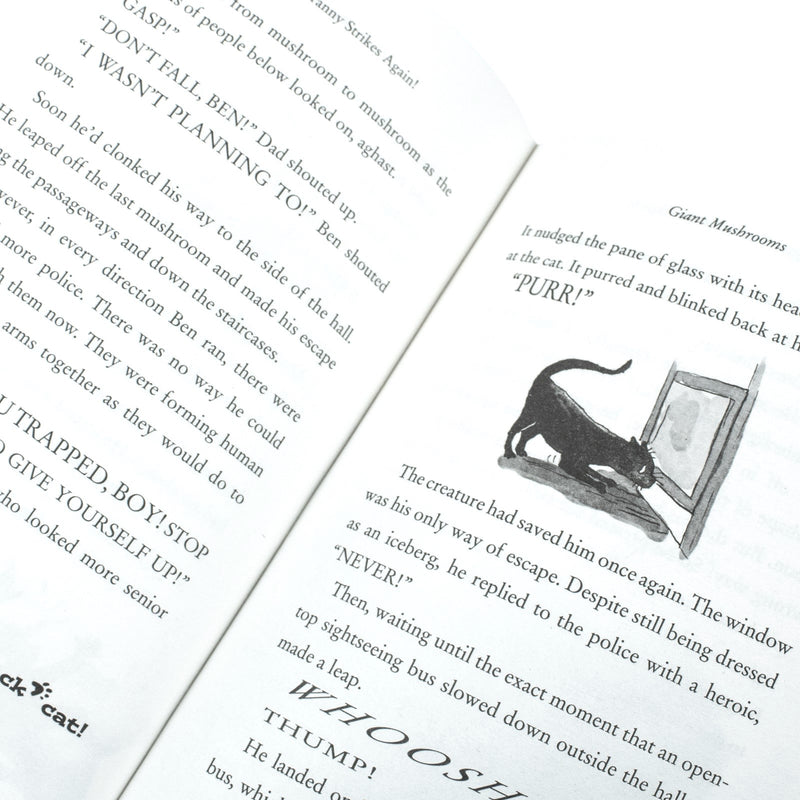 ranny Strikes Again!
from mushroom to mushroom as the
s of people below looked on, aghast.
GASP!”
“DON’T FALL, BEN!” Dad shouted up.
“I WASN’T PLANNING TO!” Ben shouted
down.
Soon he’d clonked his way to the side of the hall.
He leaped off the last mushroom and made his escape
ng the passageways and down the staircases.
wever, in every direction Ben ran, there were
more police. There was no way he could
h them now. They were forming human
arms together as they would do to
U TRAPPED, BOY! STOP
O GIVE YOURSELF UP!”
ho looked more senior
ck cat!
Giant Mushrooms
It nudged the pane of glass with its hea
at the cat. It purred and blinked back at h
“PURR!”
The creature had saved him once again. The window
was his only way of escape. Despite still being dressed
as an iceberg, he replied to the police with a heroic,
“NEVER!”
Then, waiting until the exact moment that an open-
top sightseeing bus slowed down outside the hall
made a leap.
WHOOSH
THUMP!
He landed on
bus, whi